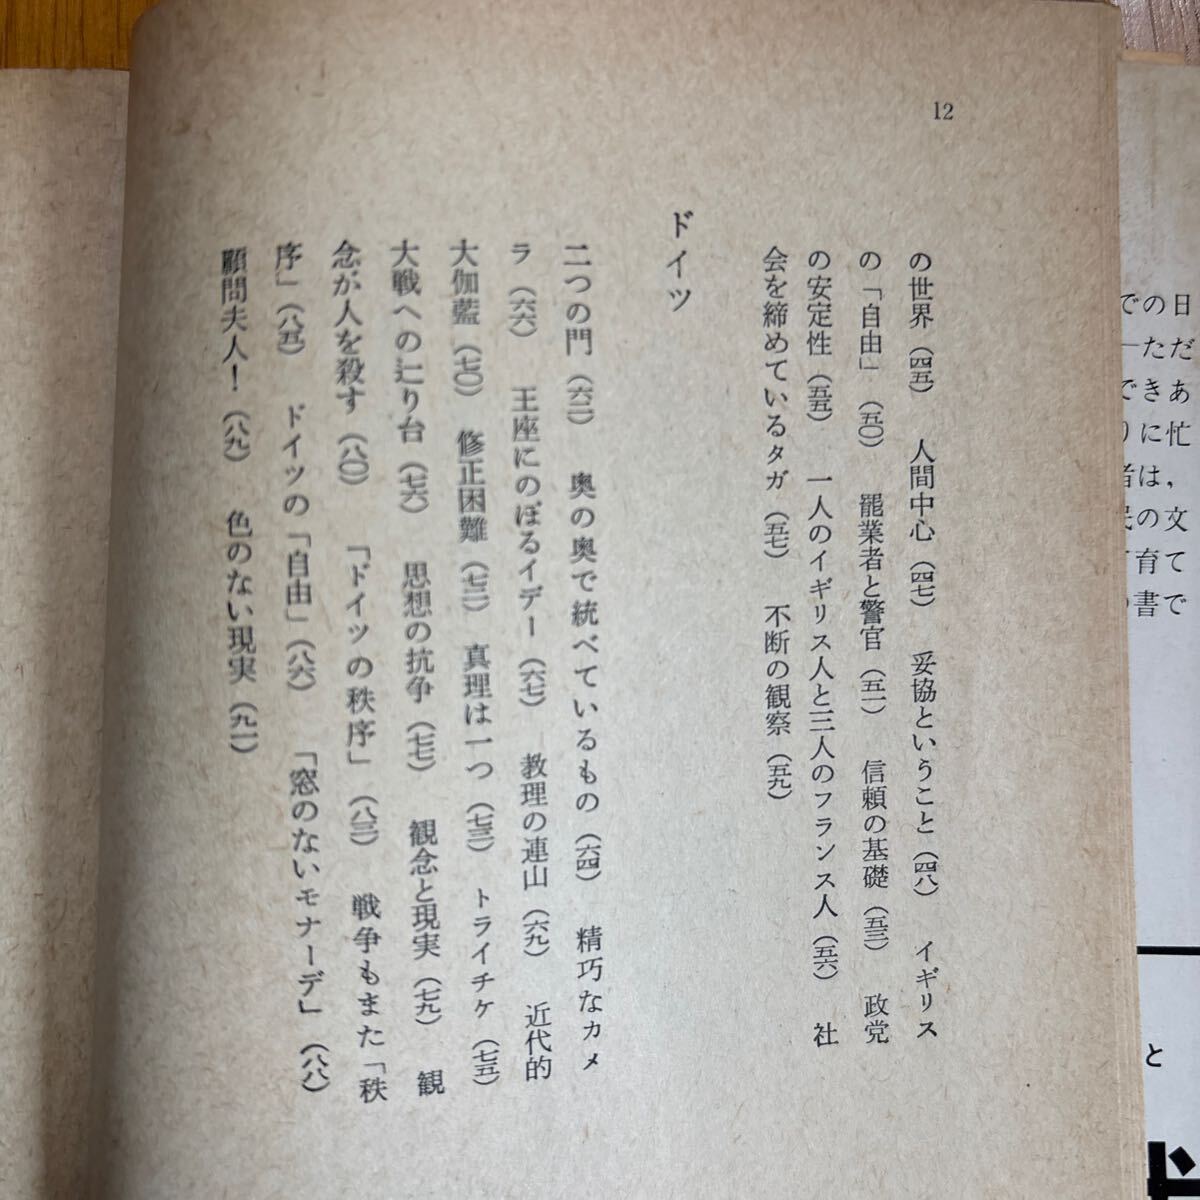 12
の世界（四五）　人間中心（四七）　妥協ということ（四八）　イギリス
の「自由」（五〇）　罷業者と警官（五一）　信頼の基礎（五三）　政党
の安定性（五五）　一人のイギリス人と三人のフランス人（五六）　社
会を締めているタガ（五七）　不断の観察（五九）
ドイツ
二つの門（六二）　奥の奥で統べているもの（六四）　精巧なカメ
ラ（六六）　王座にのぼるイデー（六七）　教理の連山（六九）　近代的
大伽藍（七〇）　修正困難（七二）　真理は一つ（七三）　トライチケ（七五）
大戦への辷り台（七六）　思想の抗争（七七）　観念と現実（七九）　観
念が人を殺す（八〇）　「ドイツの秩序」（八三）　戦争もまた「秩
序」（八五）　ドイツの「自由」（八六）　「窓のないモナーデ」（八八）
顧問夫人！（八九）　色のない現実（九一）
での日
ーただ
できあ
りに忙
者は，
民の文
育て
書で
と